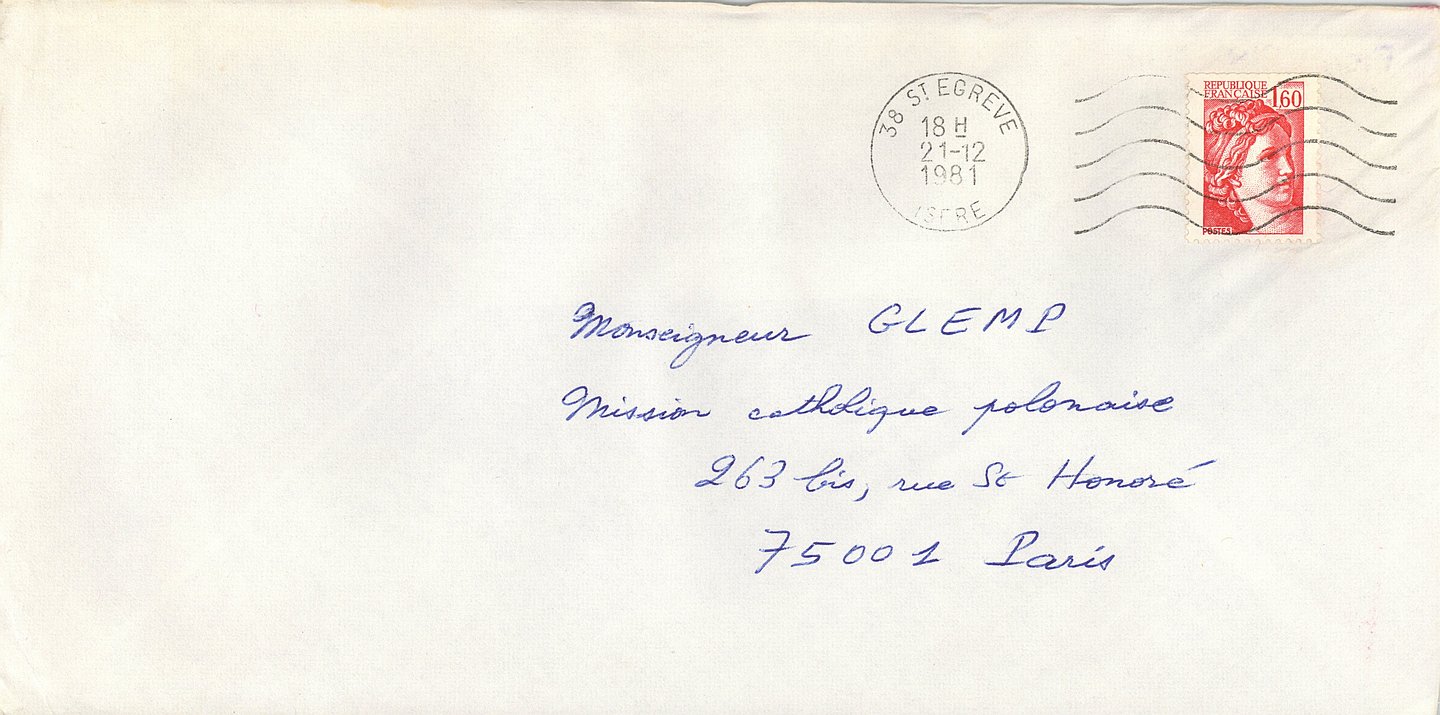 38 ST EGREVE
18 H
21-12
1981
ISERE
REPUBLIQUE
FRANÇAISE 1,60
POSTES
Monseigneur GLEMP
Mission catholique polonaise
263 bis, rue St Honoré
75001 Paris